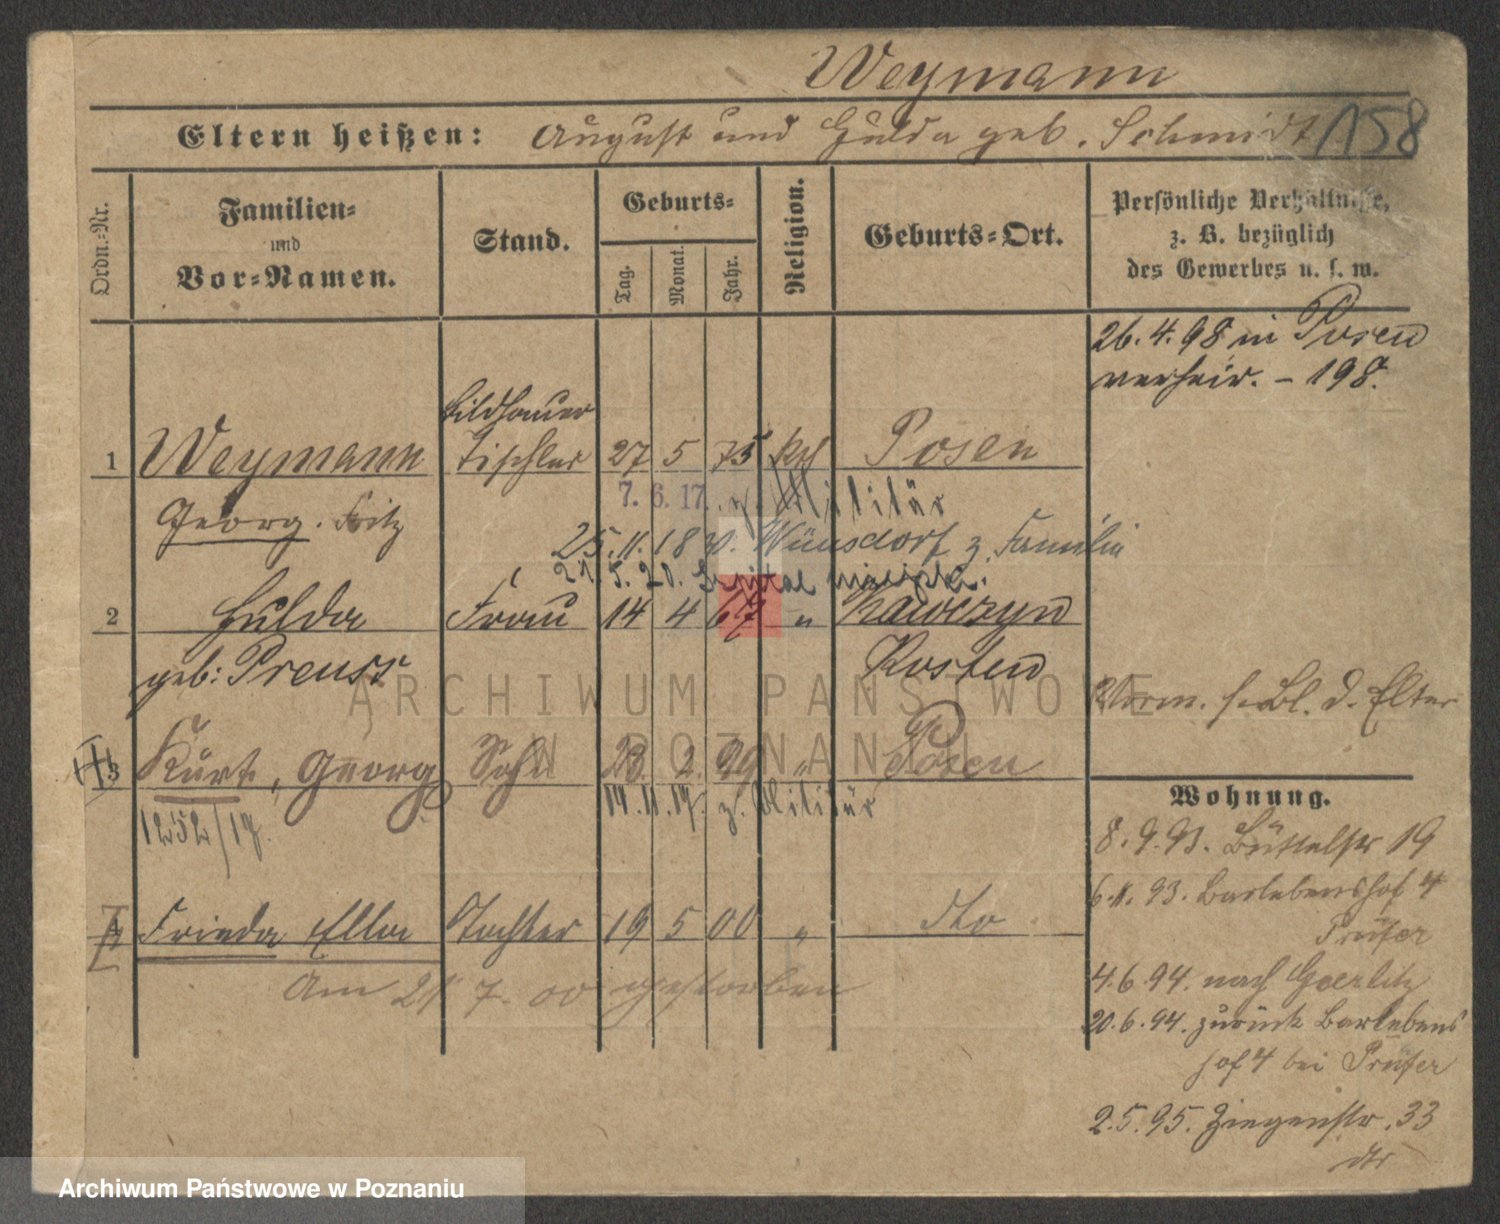 Weymann
Eltern heißen: August und Hulda geb. Schmidt 158
Ordn.-Nr.
Familien- und Vor-Namen.
Stand.
Geburts-
Tag.
Monat.
Jahr.
Religion.
Geburts-Ort.
Persönliche Verhältnisse,
z. B. bezüglich
des Gewerbes u. s. w.
26. 4. 98 in Posen
verheir. - 198.
Bildhauer
1 Weymann Tischler 27 5 75 Posen
7. 6. 17. z. Militär
Georg. Fritz
25. 11. 18 v. Wünsdorf z. Familie
21. 5. 20. Szpital miejski.
2 Hulda Frau 14 4 67 " Kawczyn
geb: Preuss Kosten
d. Elter
3 Kurt, Georg Sohn 23. 2. 99 " Posen
14. 11. 17. z. Militär
1252/17.
4 Frieda Ella Tochter 19 5 00 " dto
Am 21 7. 00 gestorben
Wohnung.
8. 9. 93. Büttelstr 19
6. 11. 93. Barlebenshof 4
Prüfer
4. 6. 94. nach Goerlitz
20. 6. 94. zurück Barlebens
hof 4 bei Prüfer
2. 5. 95. Ziegenstr. 33
dto
ARCHIWUM PAŃSTWOWE
W POZNANIU
Archiwum Państwowe w Poznaniu